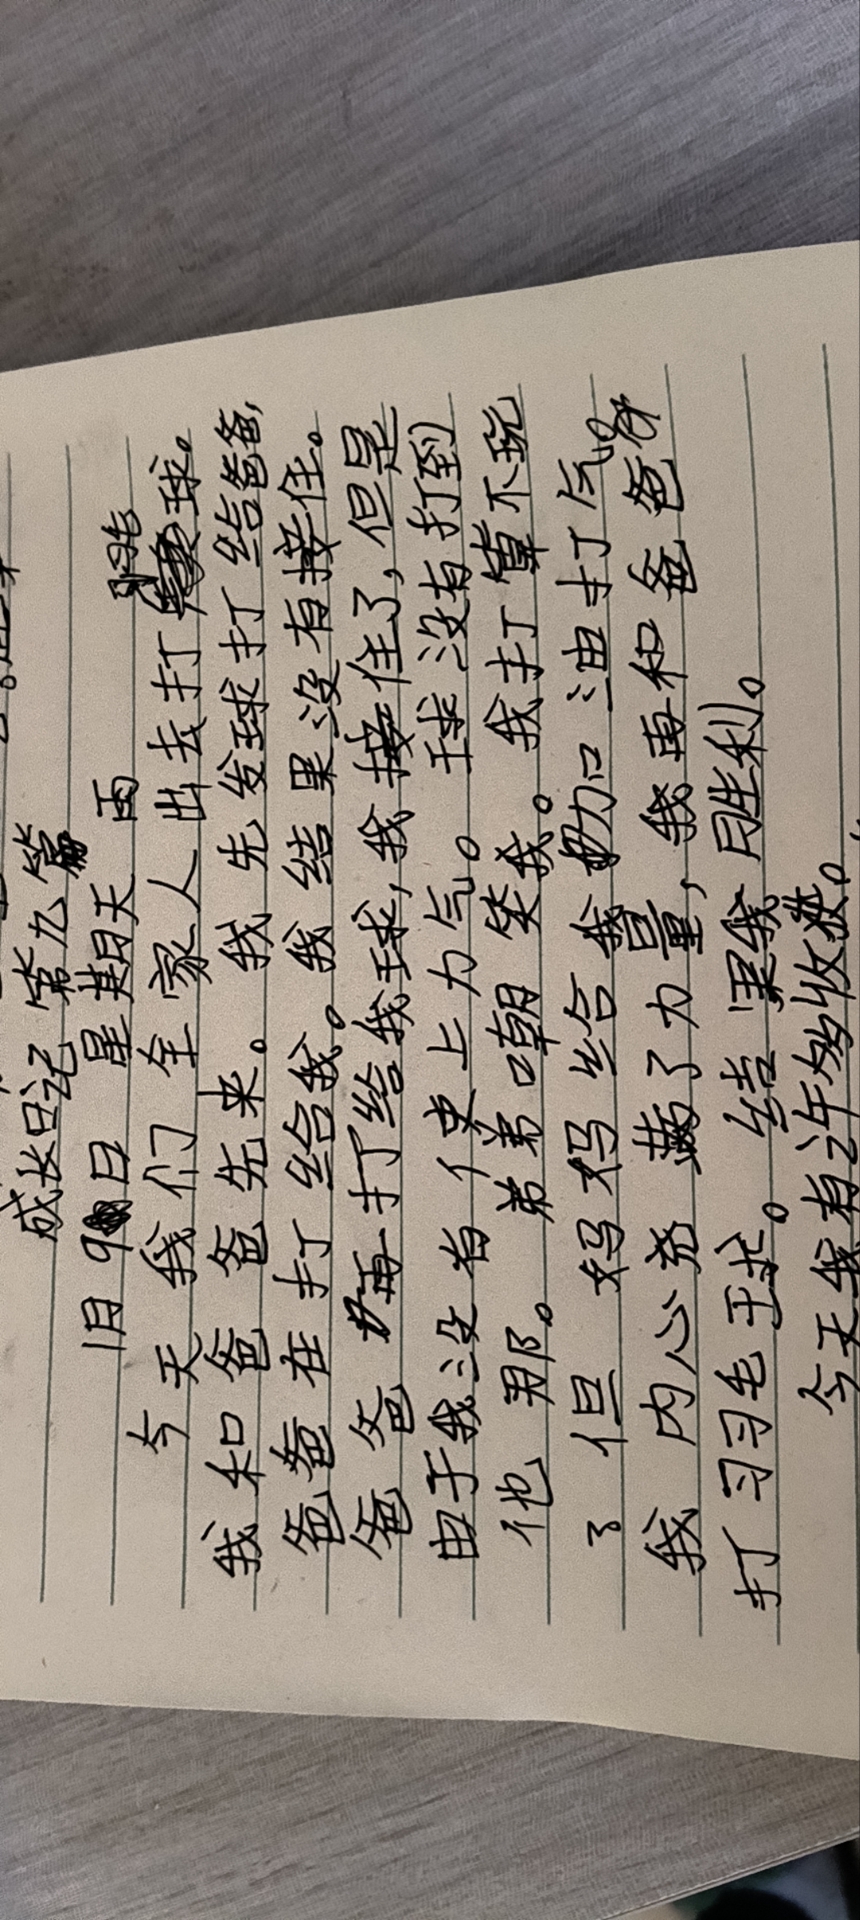 成长日记 第九篇
1月9日 星期天 雨
今天我们全家人出去打羽毛球。
我和爸爸先来。我先发球打结爸爸,
爸爸在打给我。我结果没有接住。
爸爸再打给我球,我接住了,但是
由于我没有使上力气。球没有打到
他那。弟弟嘲笑我。我打算不玩
了但妈妈给我加口油打气。
我内心充满了力量,我再和爸爸
打羽毛球。结果我胜利。
今天我有许多收获。